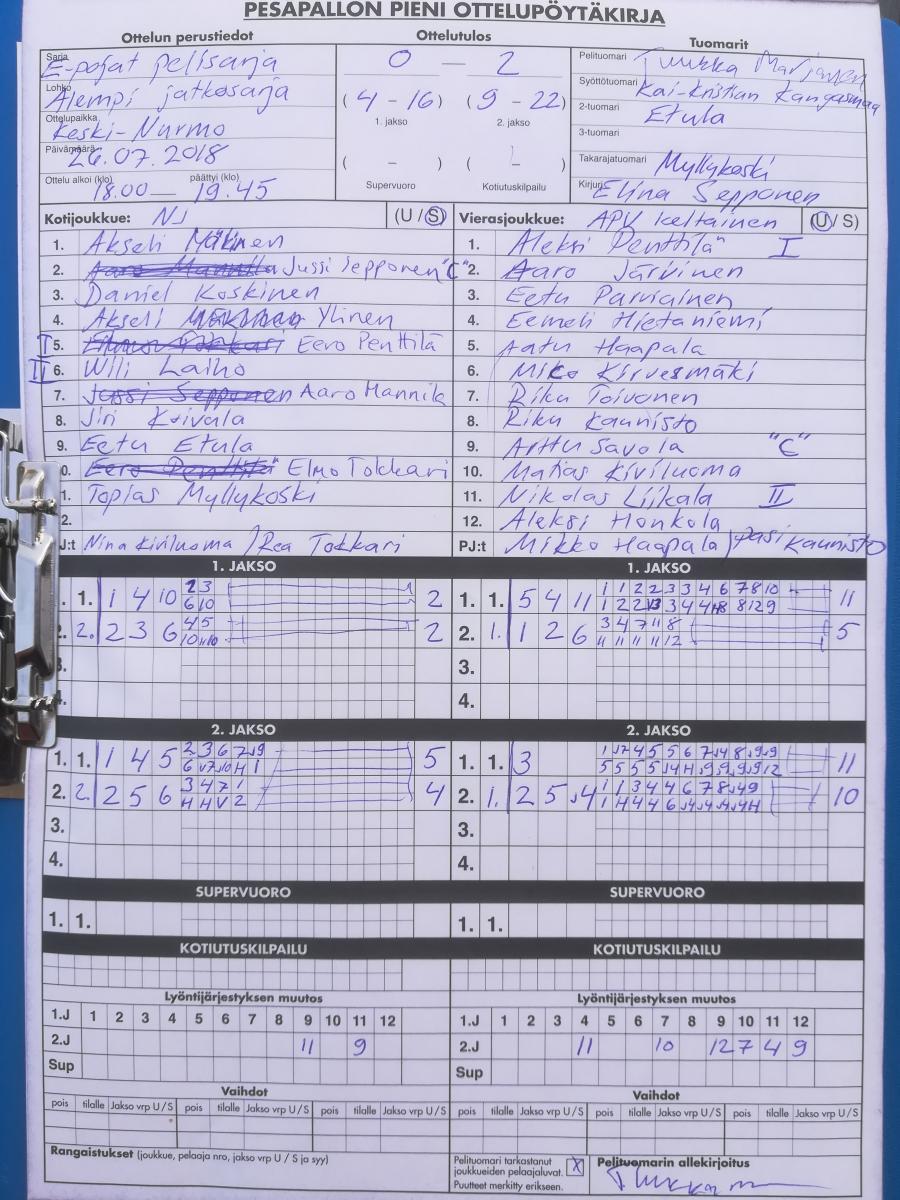 PESÄPALLON PIENI OTTELUPÖYTÄKIRJA
Ottelun perustiedot
Ottelutulos
Tuomarit
Sarja E-pojat pelisarja
Lohko Alempi jatkosarja
Ottelupaikka Keski-Nurmo
Päivämäärä 26.07.2018
Ottelu alkoi (klo) 18.00 — päättyi (klo) 19.45
0 — 2
( 4 - 16 ) ( 9 - 22 )
1. jakso 2. jakso
( - ) ( - )
Supervuoro Kotiutuskilpailu
Pelituomari Tuukka
Syöttötuomari Kai-Kristian Kangasmaa
2-tuomari Etula
3-tuomari
Takarajatuomari Myllykoski
Kirjuri Elina Sepponen
Kotijoukkue: NJ (U / S)
1. Akseli Mäkinen
2. Jussi Sepponen "C"
3. Daniel Koskinen
4. Akseli Ylinen
I 5. Eero Penttilä
II 6. Wili Laiho
7. Jussi Sepponen Aaro Mannila
8. Jiri Koivula
9. Eetu Etula
0. Eero Penttilä Elmo Tokkari
1. Topias Myllykoski
2.
J:t Nina Kiviluoma / Rea Tokkari
Vierasjoukkue: APV keltainen (U / S)
1. Aleksi Penttilä I
2. Aaro Järvinen
3. Eetu Parviainen
4. Eemeli Hietaniemi
5. Aatu Haapala
6. Miko Kirvesmäki
7. Riku Toivonen
8. Riku Kaunisto
9. Arttu Savola "C"
10. Matias Kiviluoma
11. Nikolas Liikala II
12. Aleksi Honkola
PJ:t Mikko Haapala / Pasi Kaunisto
1. JAKSO
1. 1 4 10 2 3 2
6 10
2. 2 3 6 4 5 2
3.
4.
1. JAKSO
1. 1. 5 4 11 1 1 2 2 2 3 3 4 6 7 8 10 11
2. 1. 1 2 6 3 4 7 11 8 5
11 11 11 11 12
3.
4.
2. JAKSO
1. 1. 1 4 5 2 3 6 7 5
2. 2. 2 5 6 3 4 7 1 4
H H V 2
3.
4.
2. JAKSO
1. 1. 3 11
2. 1. 2 5 10
3.
4.
SUPERVUORO
1. 1.
SUPERVUORO
1. 1.
KOTIUTUSKILPAILU
KOTIUTUSKILPAILU
Lyöntijärjestyksen muutos
1.J 1 2 3 4 5 6 7 8 9 10 11 12
2.J 11 9
Sup
Lyöntijärjestyksen muutos
1.J 1 2 3 4 5 6 7 8 9 10 11 12
2.J 11 10 12 7 4 9
Sup
Vaihdot
pois tilalle Jakso vrp U / S pois tilalle Jakso vrp U / S pois tilalle Jakso vrp U / S
Vaihdot
pois tilalle Jakso vrp U / S pois tilalle Jakso vrp U / S pois tilalle Jakso vrp U / S
Rangaistukset (joukkue, pelaaja nro, jakso vrp U / S ja syy)
Pelituomari tarkastanut
joukkueiden pelaajaluvat. X
Puutteet merkitty erikseen.
Pelituomarin allekirjoitus